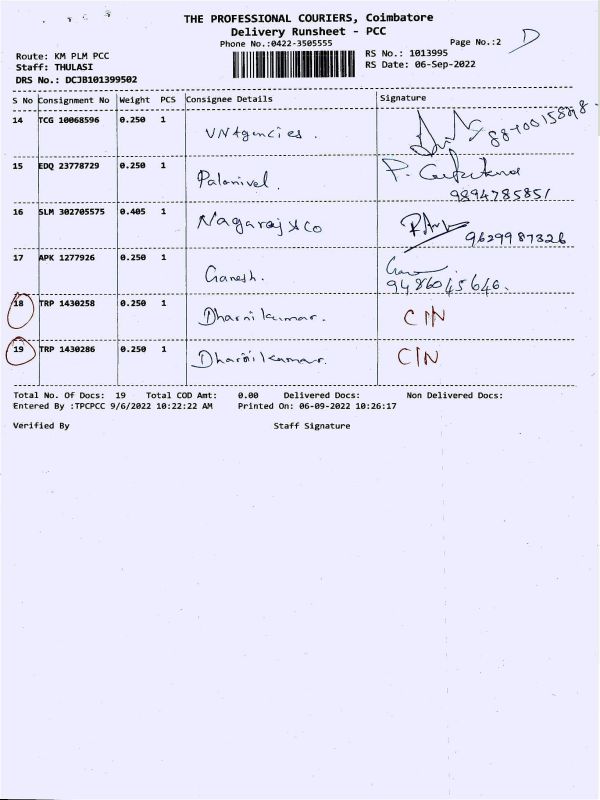 THE PROFESSIONAL COURIERS, Coimbatore
Delivery Runsheet - PCC
Phone No.:0422-3505555
Page No.:2 D
Route: KM PLM PCC
Staff: THULASI
DRS No.: DCJB101399502
RS No.: 1013995
RS Date: 06-Sep-2022
S No Consignment No Weight PCS Consignee Details Signature
14 TCG 10068596 0.250 1 VN Agencies.
15 EDQ 23778729 0.250 1 Palanivel. 9894785851
16 SLM 302705575 0.405 1 Nagaraj & Co 9629987326
17 APK 1277926 0.250 1 Ganesh. 9486045646.
18 TRP 1430258 0.250 1 Dharnikumar. C/N
19 TRP 1430286 0.250 1 Dharnikumar. C/N
Total No. Of Docs: 19 Total COD Amt: 0.00 Delivered Docs: Non Delivered Docs:
Entered By :TPCPCC 9/6/2022 10:22:22 AM Printed On: 06-09-2022 10:26:17
Verified By Staff Signature